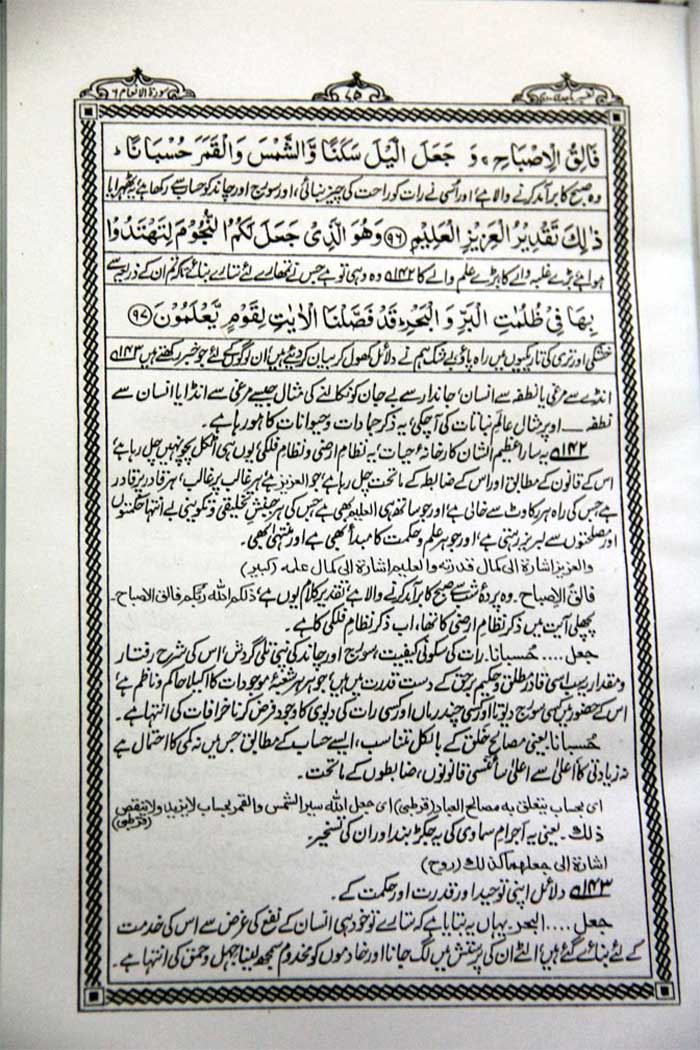 سورۃ الانعام ۶
فَالِقُ الْاِصْبَاحِ ۚ وَ جَعَلَ الَّيْلَ سَكَنًا وَّ الشَّمْسَ وَ الْقَمَرَ حُسْبَانًا ؕ
وہ صبح کا برآمد کرنے والا ہے اور اُسی نے رات کو راحت کی چیز بنائی، اور سورج اور چاند کو حساب سے رکھا ہے، یہ ٹھہرایا
ذٰلِكَ تَقْدِيْرُ الْعَزِيْزِ الْعَلِيْمِ ۹۶ وَهُوَ الَّذِيْ جَعَلَ لَكُمُ النُّجُوْمَ لِتَهْتَدُوْا
ہوا ہے بڑے غلبہ والے کا بڑے علم والے کا ۱۴۲ وہ وہی تو ہے جس نے تمھارے لئے ستارے بنائے تاکہ تم ان کے ذریعہ سے
بِهَا فِيْ ظُلُمٰتِ الْبَرِّ وَ الْبَحْرِ ؕ قَدْ فَصَّلْنَا الْاٰيٰتِ لِقَوْمٍ يَّعْلَمُوْنَ ۹۷
خشکی اور تری کی تاریکیوں میں راہ پاؤ، بے شک ہم نے دلائل کھول کر بیان کر دیئے ہیں ان لوگوں کے لئے جو خبر رکھتے ہیں ۱۴۳
انڈے سے مرغی یا نطفہ سے انسان، جاندار سے بے جان کو نکالنے کی مثال جیسے مرغی سے انڈا یا انسان سے
نطفہ ـــ اوپر مثال عالمِ نباتات کی آچکی، یہ ذکر جمادات و حیوانات کا ہو رہا ہے۔
۱۴۲ یہ سارا عظیم الشان کارخانۂ حیات، یہ نظامِ ارضی و نظامِ فلکی، یوں ہی اٹکل پچو نہیں چل رہا ہے،
اس کے قانون کے مطابق اور اس کے ضابطہ کے ماتحت چل رہا ہے، جو العزیز ہے، ہر غالب پر غالب، ہر قادر پر قادر
ہے جس کی راہ ہر رکاوٹ سے خالی ہے، اور جو ساتھ ہی العلیم بھی ہے جس کی ہر جنبش تخلیقی و تکوینی بے انتہا حکمتوں
اور مصلحتوں سے لبریز رہتی ہے، اور جو ہر علم و حکمت کا مبدأ بھی ہے اور منتہیٰ بھی۔
والعزیز اشارۃ الی کمال قدرتہ والعلیم اشارۃ الی کمال علمہ (کبیر)
فالقُ الاصباح۔ وہ پردۂ شب سے صبح کا برآمد کرنے والا ہے، تقدیر کلام یوں ہے، ذلکم اللہ ربکم فالق الاصباح۔
پچھلی آیت میں ذکر نظامِ ارضی کا تھا، اب ذکر نظامِ فلکی کا ہے۔
جعل .... حُسبانا۔ رات کی سکونی کیفیت، سورج اور چاند کی نپی تلی گردش، اس کی شرح رفتار
و مقدار یہ سب اسی قادر مطلق و حکیم برحق کے دست قدرت میں ہیں، جو ہر ہر شعبۂ موجودات کا اکیلا حاکم و ناظم ہے،
اس کے حضور میں کسی سورج دیوتا اور کسی چندرماں اور کسی رات کی دیوی کا وجود فرض کرنا خرافات کی انتہا ہے۔
حُسبانا یعنی مصالح خلق کے بالکل متناسب، ایسے حساب کے مطابق جس میں نہ کمی کا احتمال ہے
نہ زیادتی کا، اعلیٰ سے اعلیٰ سائنسی قانونوں، ضابطوں کے ماتحت۔
ای بحساب یتعلق بہ مصالح العباد (قرطبی) ای جعل اللہ سیر الشمس والقمر بحساب لایزید ولاینقص (قرطبی)
ذلک۔ یعنی یہ اَجرامِ سماوی کی یہ جکڑ بند اور ان کی تسخیر۔
اشارۃ الی جعلھما کذلک (روح)
۱۴۳ دلائل اپنی توحید اور قدرت اور حکمت کے۔
جعل .... البحر۔ یہاں یہ بتایا ہے کہ ستارے تو خود ہی انسان کے نفع کی غرض سے اس کی خدمت
کے لئے بنائے گئے ہیں، الٹے ان کی پرستش میں لگ جانا اور خادموں کو مخدوم سمجھ لینا جہل و حمق کی انتہا ہے۔